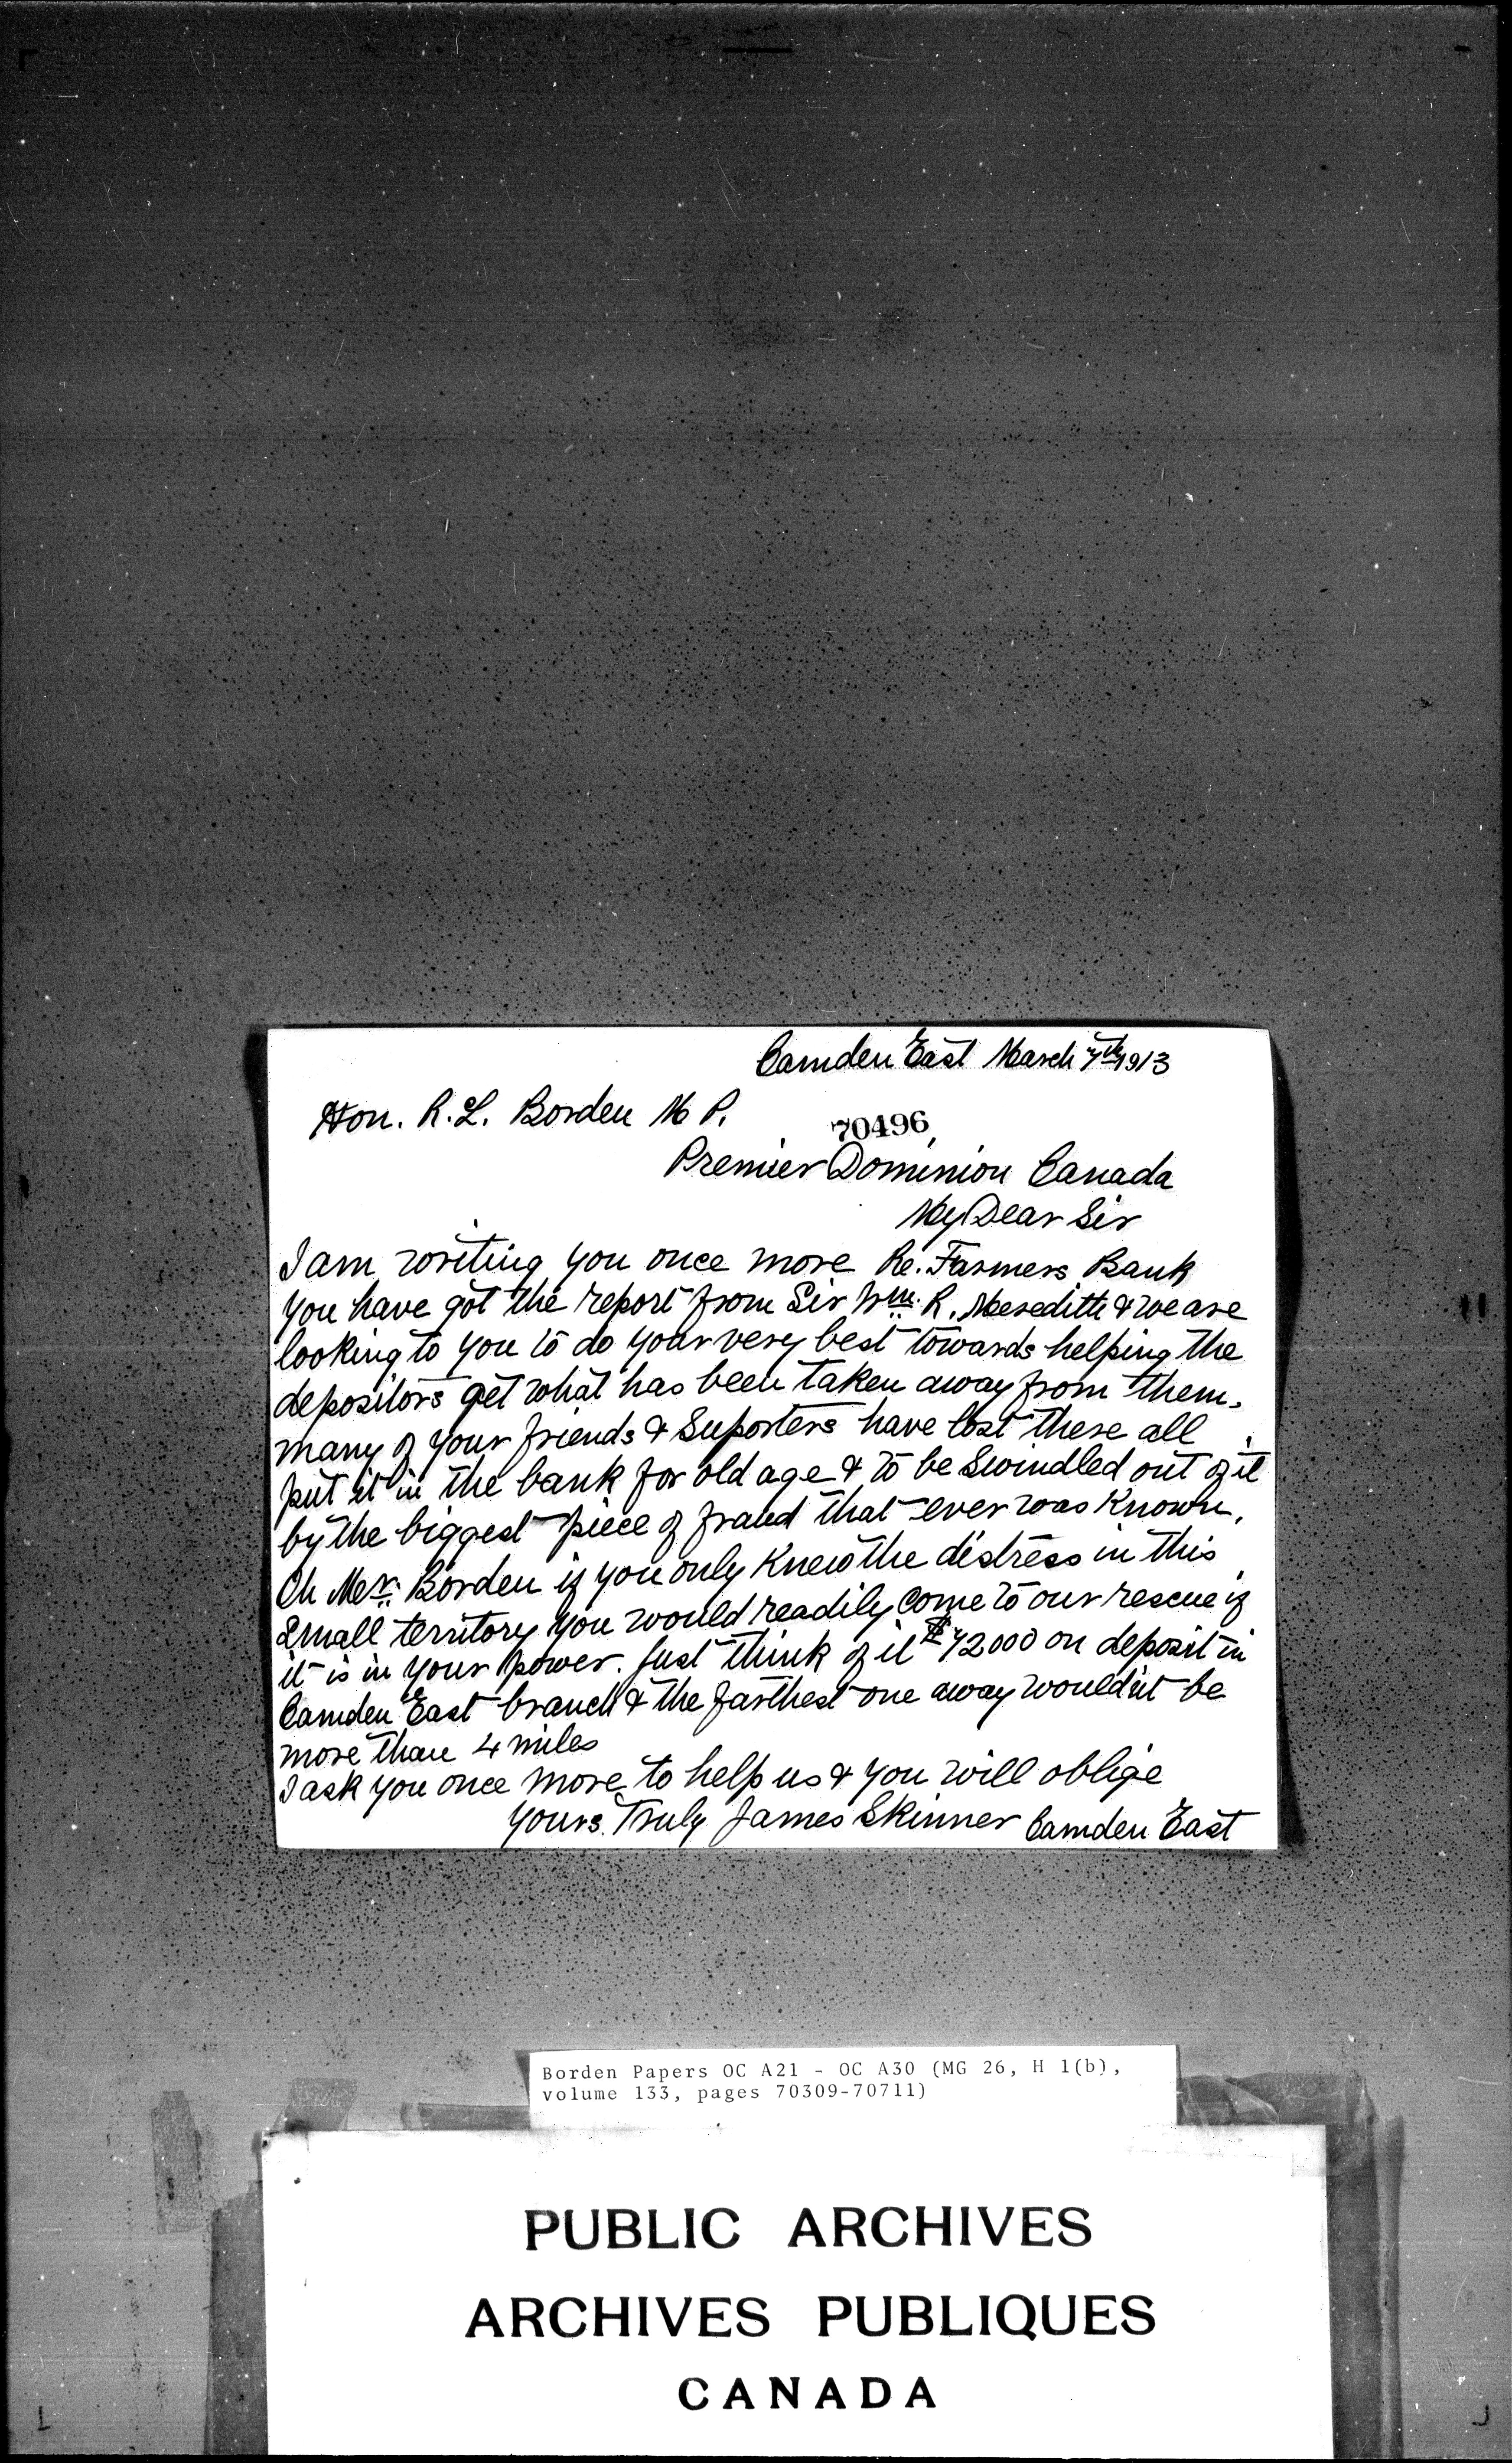 Camden East March 7th 1913
Hon. R. L. Borden M P.
70496
Premier Dominion Canada
My Dear Sir
I am writing you once more Re. Farmers Bank
you have got the report from Sir Wm. R. Meredith & we are
looking to you to do your very best towards helping the
depositors get what has been taken away from them.
many of your friends & Suporters have lost there all
put it in the bank for old age & to be Swindled out of it
by the biggest piece of fraud that ever was Known.
Oh Mr. Borden if you only Knew the distress in this
Small territory you would readily come to our rescue if
it is in your power. Just think of it $72000 on deposit in
Camden East branch & the farthest one away would'nt be
more than 4 miles
I ask you once more to help us & you will oblige
yours Truly James Skinner Camden East
Borden Papers OC A21 - OC A30 (MG 26, H 1(b),
volume 133, pages 70309-70711)
PUBLIC ARCHIVES
ARCHIVES PUBLIQUES
CANADA